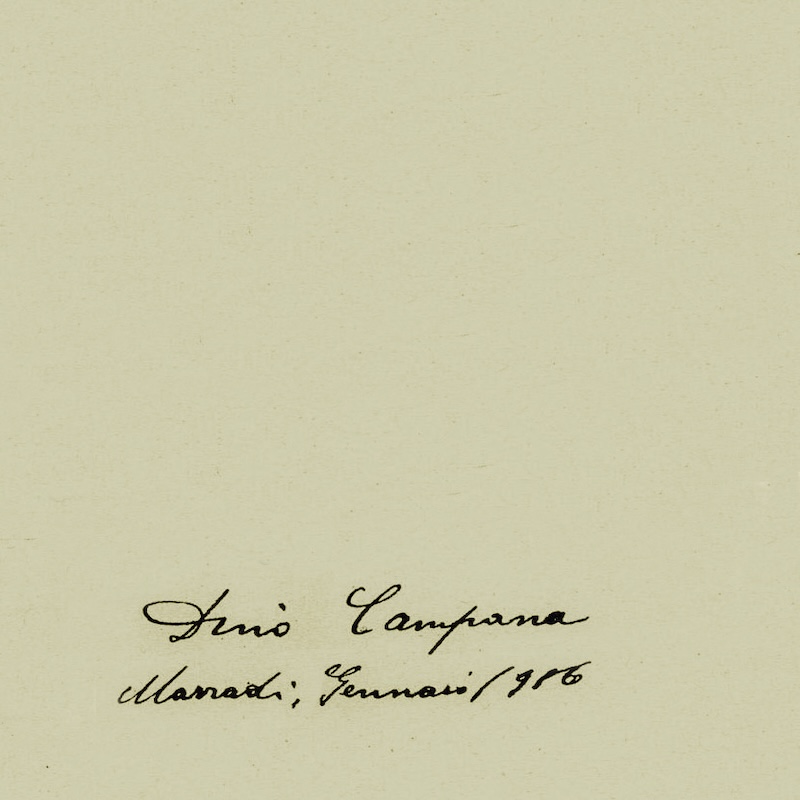 Dino Campana
Marradi, Gennaio 1916